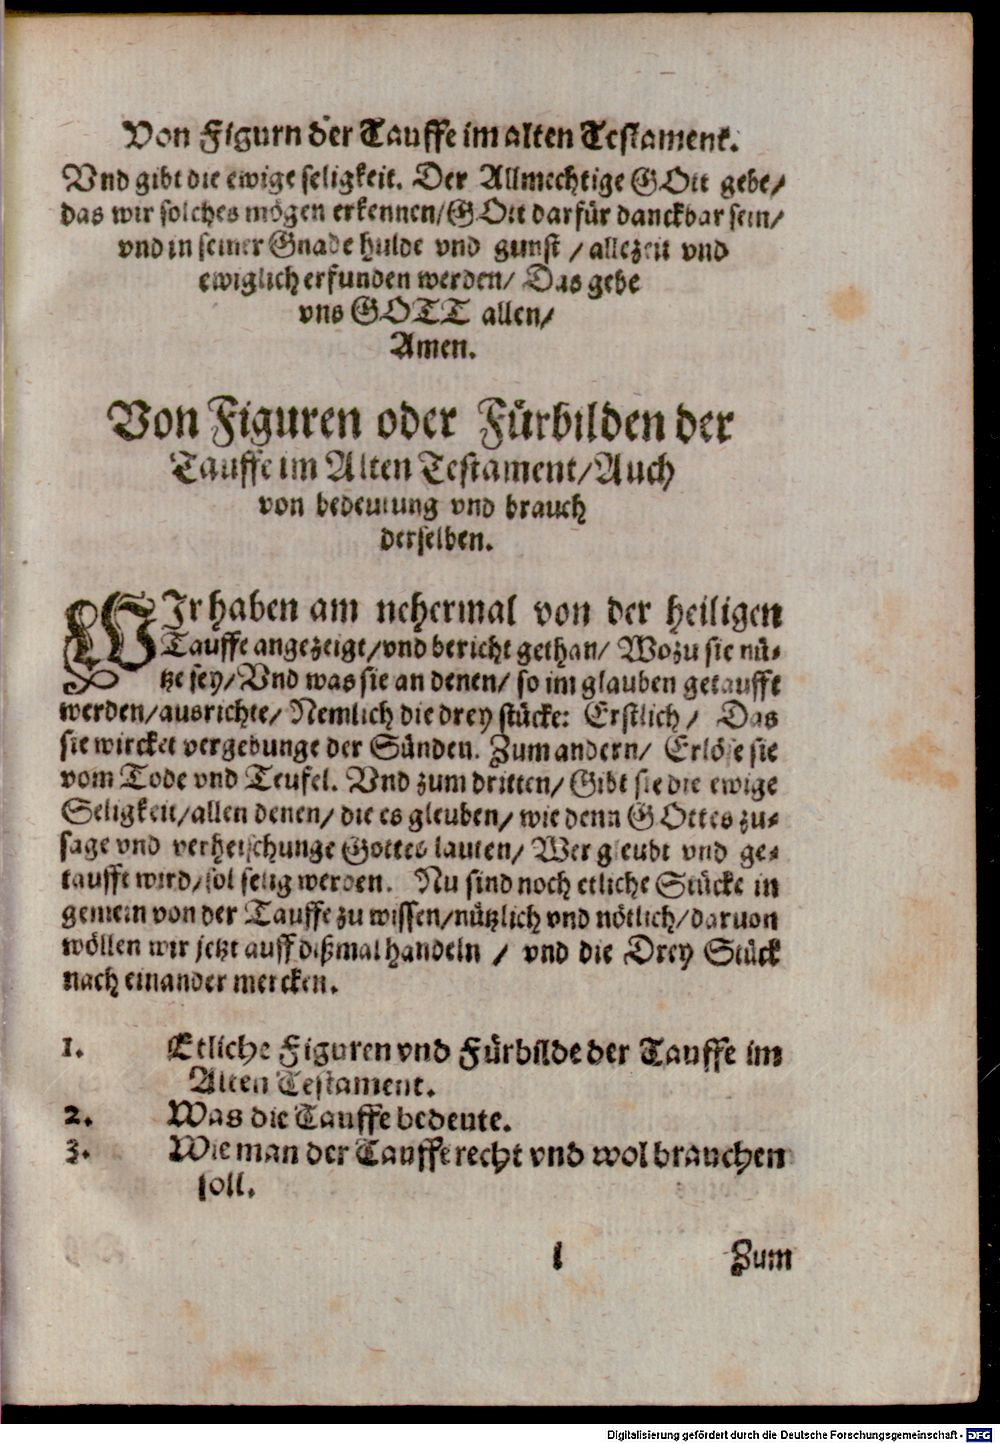 Von Figurn der Tauffe im alten Testament.
Vnd gibt die ewige seligkeit. Der Allmechtige GOtt gebe/
das wir solches mögen erkennen/GOtt darfür danckbar sein/
vnd in seiner Gnade hulde vnd gunst / allezeit vnd
ewiglich erfunden werden/ Das gebe
vns GOTT allen/
Amen.
Von Figuren oder Fürbilden der
Tauffe im Alten Testament/Auch
von bedeutung vnd brauch
derselben.
WIr haben am nehermal von der heiligen
Tauffe angezeigt/vnd bericht gethan/ Wozu sie nü-
tze sey/Vnd was sie an denen/ so im glauben getaufft
werden/ausrichte/ Nemlich die drey stücke: Erstlich/ Das
sie wircket vergebunge der Sünden. Zum andern/ Erlöse sie
vom Tode vnd Teufel. Vnd zum dritten/ Gibt sie die ewige
Seligkeit/allen denen/ die es gleuben/ wie denn GOttes zu-
sage vnd verheischunge Gottes lauten/ Wer gleubt vnd ge-
taufft wird/sol selig werden. Nu sind noch etliche Stücke in
gemein von der Tauffe zu wissen/nützlich vnd nötlich/daruon
wöllen wir jetzt auff dißmal handeln / vnd die Drey Stück
nach einander mercken.
1. Etliche Figuren vnd Fürbilde der Tauffe im
Alten Testament.
2. Was die Tauffe bedeute.
3. Wie man der Tauffe recht vnd wol brauchen
soll.
l Zum
Digitalisierung gefördert durch die Deutsche Forschungsgemeinschaft - DFG